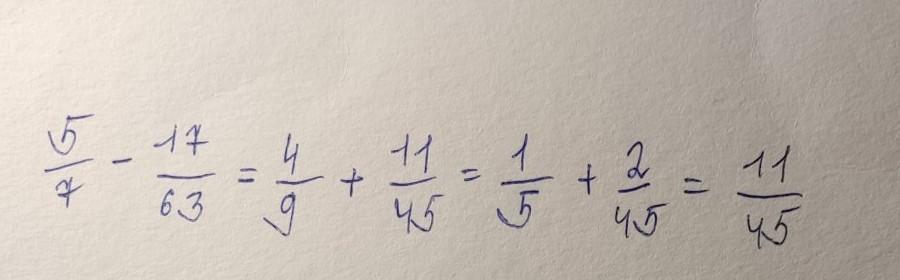 5/7 - 17/63 = 4/9 + 11/45 = 1/5 + 2/45 = 11/45